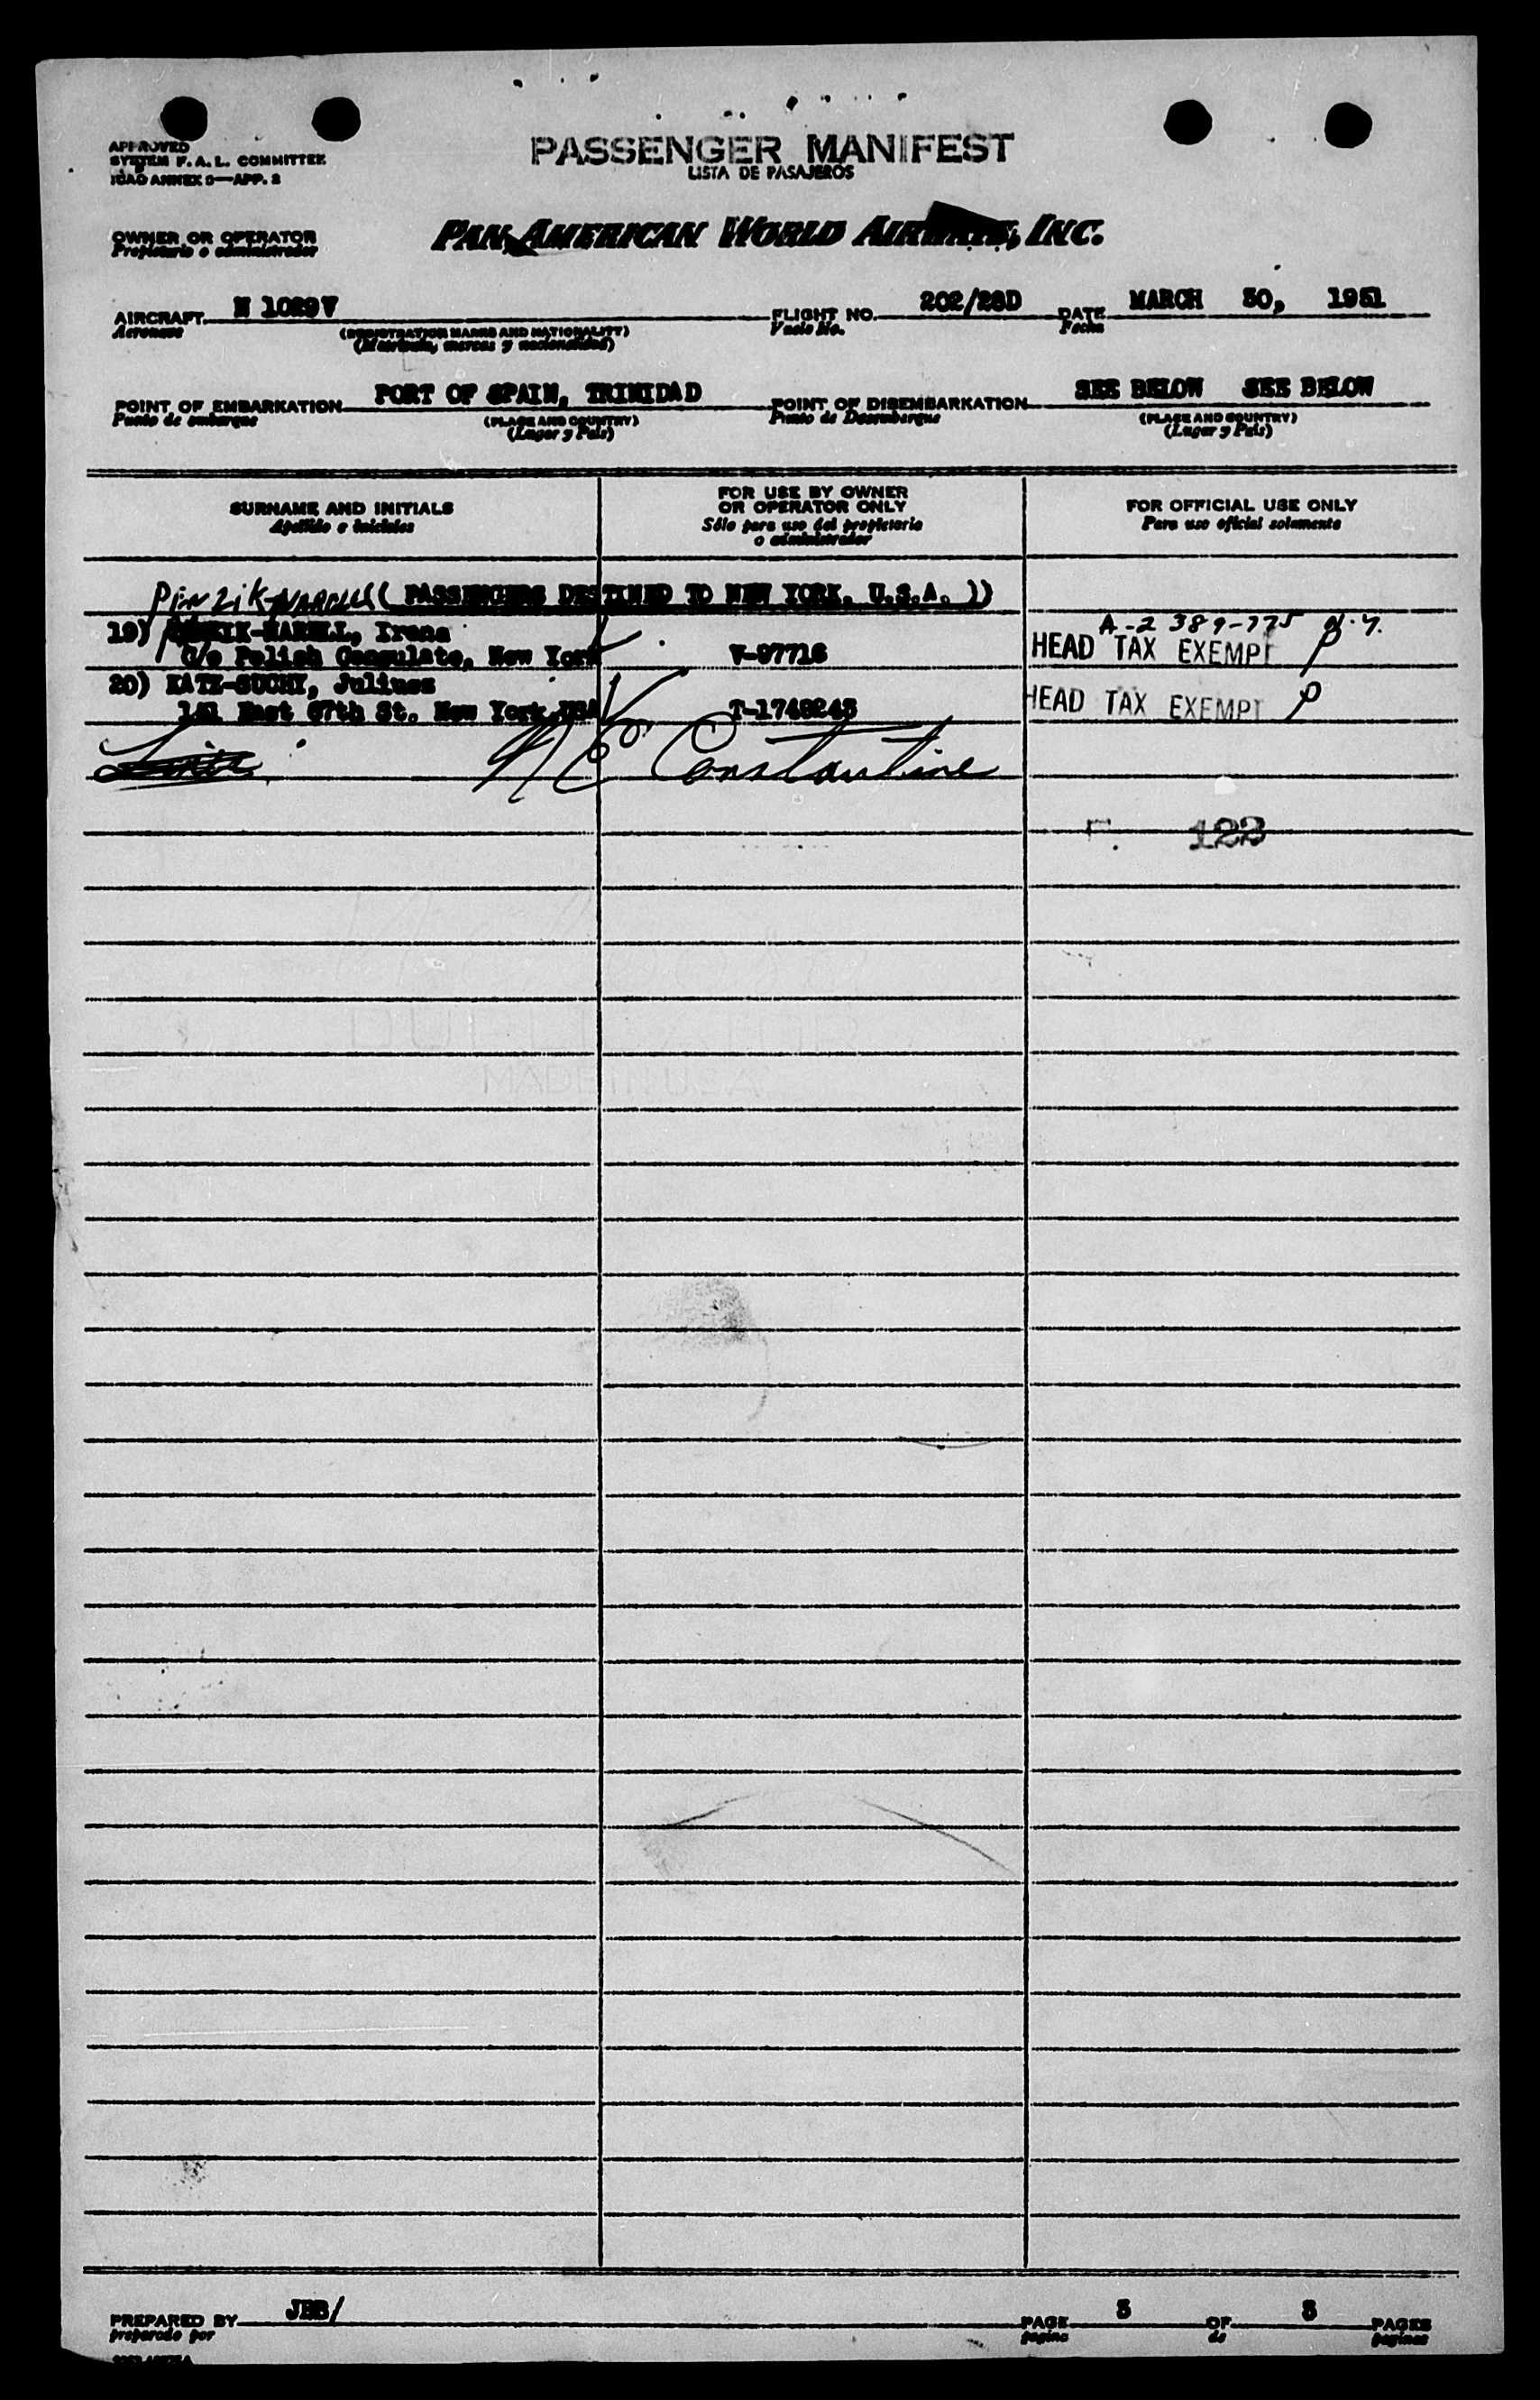 APPROVED
SYSTEM F. A. L. COMMITTEE
ICAO ANNEX 9—APP. 2
PASSENGER MANIFEST
LISTA DE PASAJEROS
OWNER OR OPERATOR
Propietario o administrador
PAN AMERICAN WORLD AIRWAYS, INC.
AIRCRAFT N 1029V
Aeronave
(REGISTRATION MARKS AND NATIONALITY)
(Matrícula, marcas y nacionalidad)
FLIGHT NO. 202/28D
Vuelo No.
DATE MARCH 30, 1951
Fecha
POINT OF EMBARKATION PORT OF SPAIN, TRINIDAD
Punto de embarque
(PLACE AND COUNTRY)
(Lugar y País)
POINT OF DISEMBARKATION SEE BELOW SEE BELOW
Punto de Desembarque
(PLACE AND COUNTRY)
(Lugar y País)
SURNAME AND INITIALS
Apellido e iniciales
FOR USE BY OWNER
OR OPERATOR ONLY
Sólo para uso del propietario
o administrador
FOR OFFICIAL USE ONLY
Para uso oficial solamente
(( PASSENGERS DESTINED TO NEW YORK, U.S.A. ))
19) Irena
C/o Polish Consulate, New York V-97716 A-2 389-775 N.Y.
HEAD TAX EXEMPT
20) KATZ-SUCHY, Juliusz
151 East 67th St. New York,USA T-1749245 HEAD TAX EXEMPT
Constantine
122
PREPARED BY JBB/
preparado por
PAGE 3 OF 3 PAGES
pagina de paginas